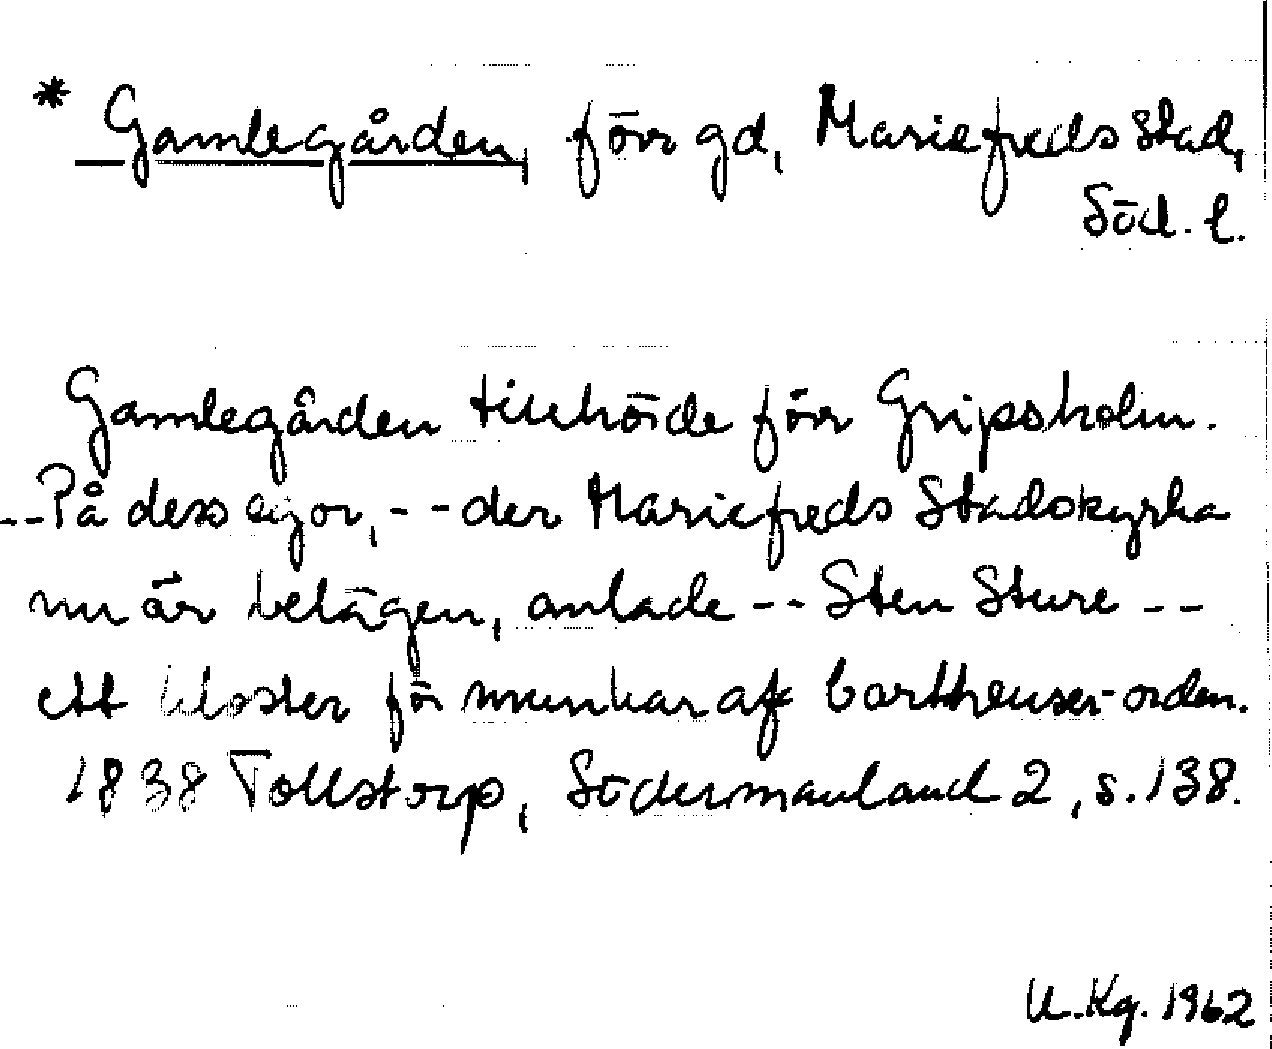 * Gamlegården, förr gd, Mariefreds stad,
Söd. l.
Gamlegården tillhörde förr Gripsholm.
--På dess egor, -- der Mariefreds Stadskyrka
nu är belägen, anlade -- Sten Sture --
ett kloster för munkar af Cartheuser-orden.
1838 Tollstorp, Södermanland 2, s. 138.
U. Kg. 1962